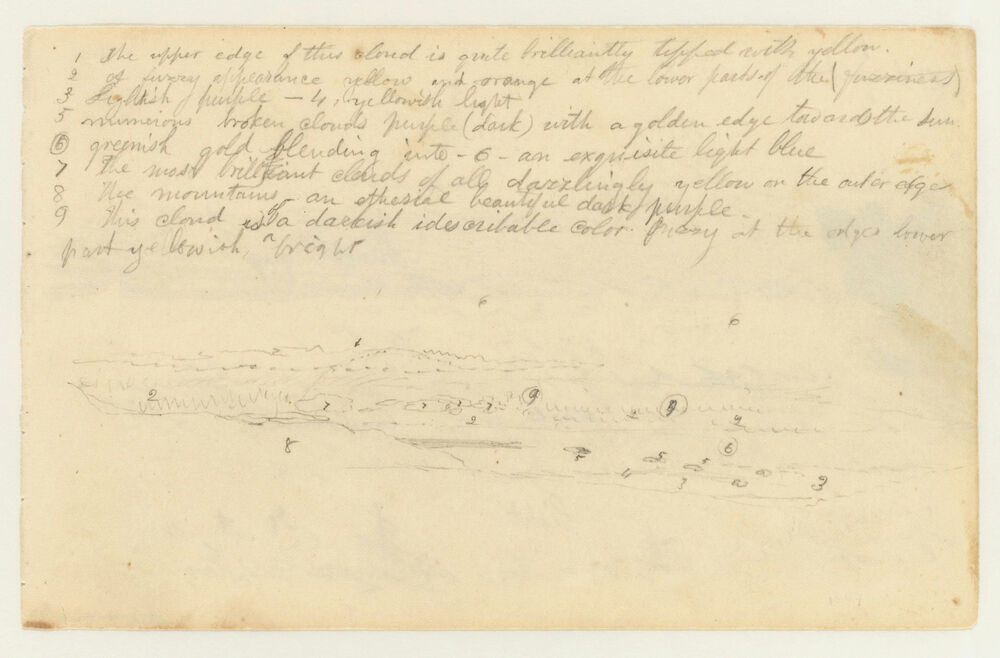 1 The upper edge of this cloud is quite brilliantly tipped with yellow.
2 of fuzzy appearance yellow and orange at the lower parts of the (fuzziness)
3 Lightish purple – 4, yellowish light
5 numerous broken clouds purple (dark) with a golden edge towards the sun.
6 greenish gold blending into – 6 – an exquisite light blue
7 The most brilliant clouds of all dazzlingly yellow on the outer edges
8 The mountains an etherial beautiful dark purple.
9 This cloud is a darkish idescribable color. fuzzy at the edges lower
part yellowish, bright
6
6
1
2 7 7 7 9 9
2 9
8 6
5 5 5
4 3 2 3